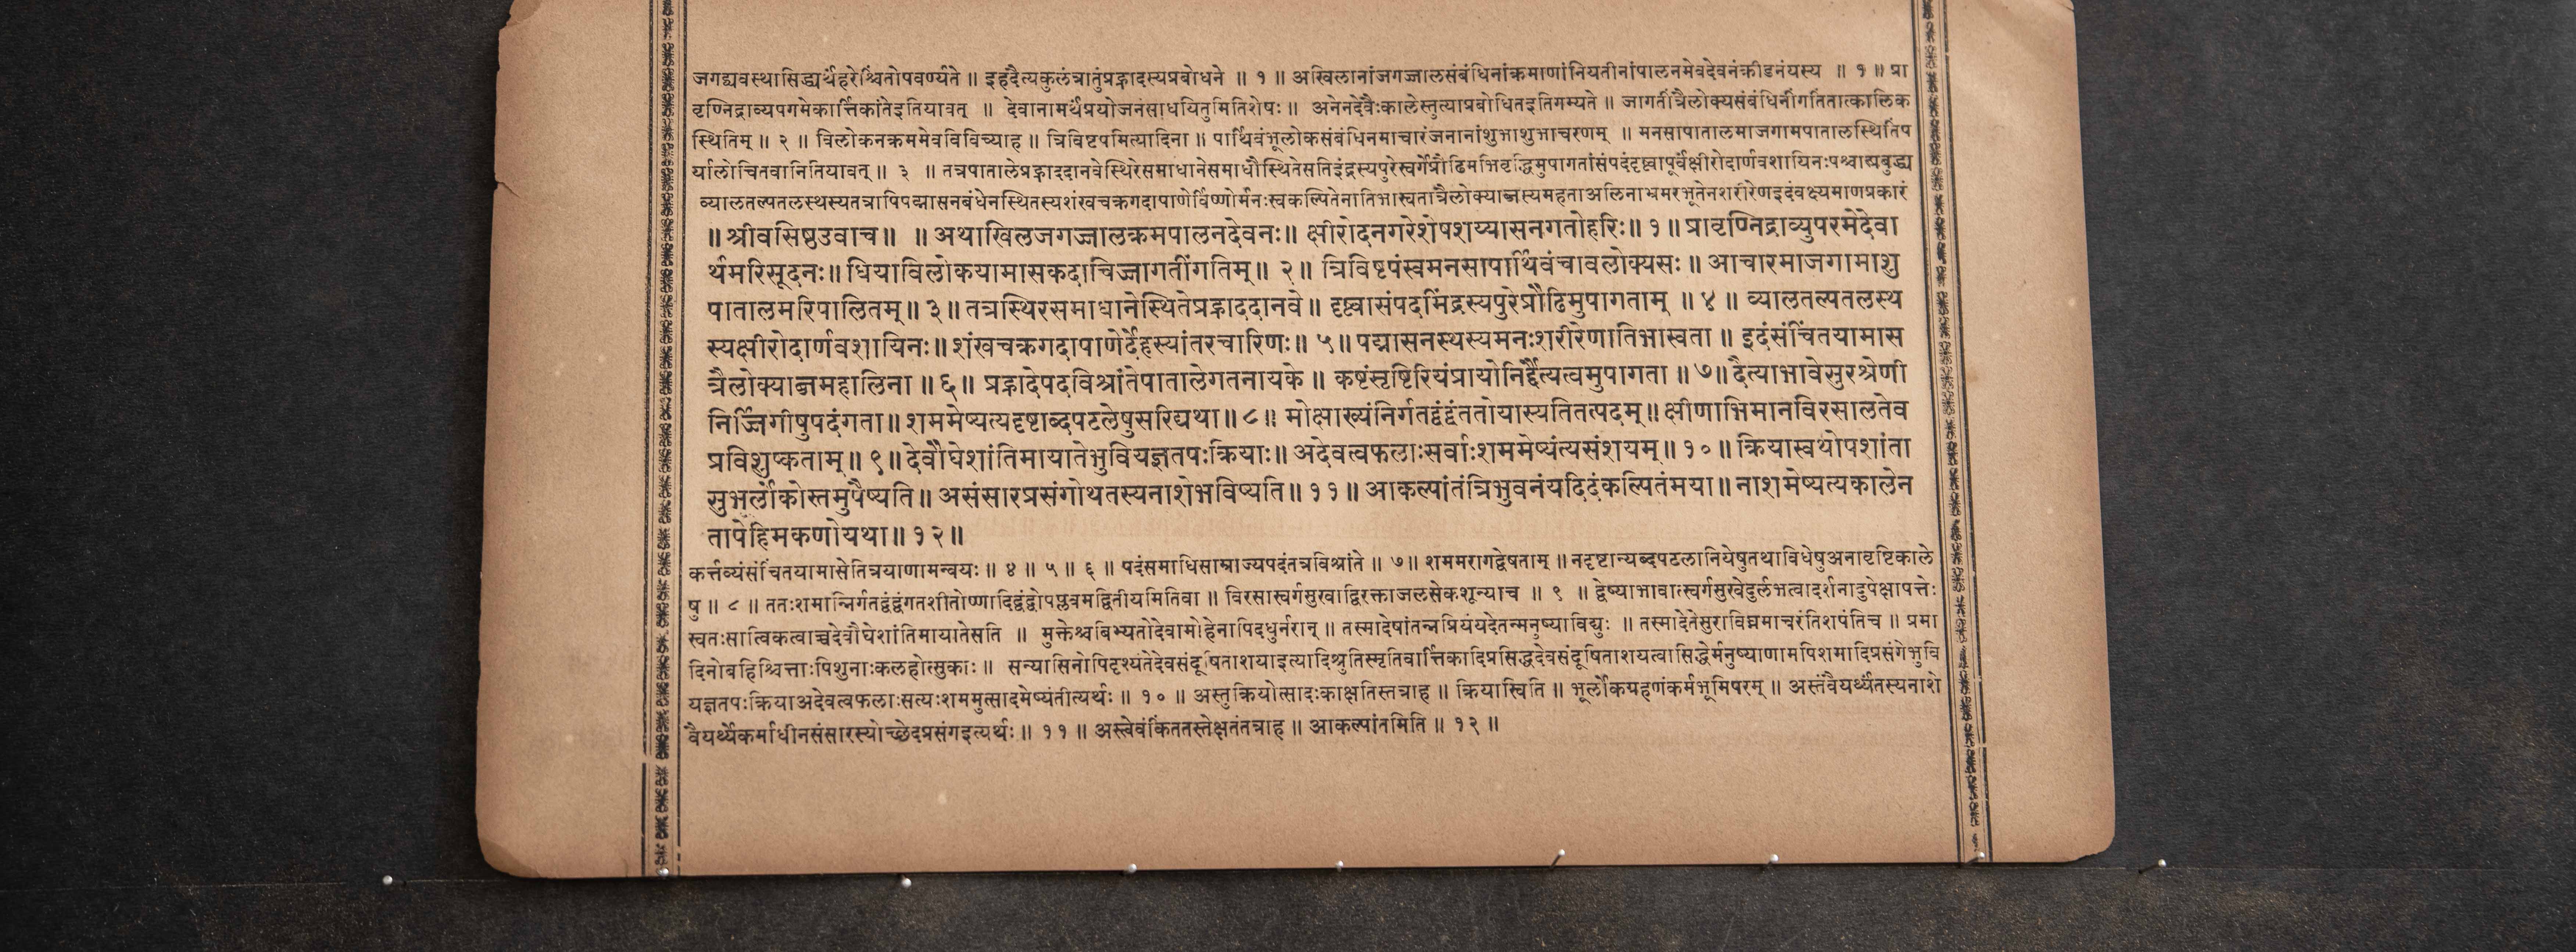 जगद्व्यवस्थासिद्ध्यर्थंहरेश्चिंतोपवर्ण्यते ॥ इहदैत्यकुलंत्रातुंप्रह्लादस्यप्रबोधने ॥ १ ॥ अखिलानांजगज्जालसंबंधिनांक्रमाणांनियतीनांपालनमेवदेवनंक्रीडनंयस्य ॥ १ ॥ प्रा
वृण्निद्राव्यपगमेकार्त्तिकांतेइतियावत् ॥ देवानामर्थंप्रयोजनंसाधयितुमितिशेषः ॥ अनेनदेवैःकालेस्तुत्याप्रबोधितइतिगम्यते ॥ जागतींत्रैलोक्यसंबंधिनींगतिंतात्कालिक
स्थितिम् ॥ २ ॥ विलोकनक्रममेवविविच्याह ॥ त्रिविष्टपमित्यादिना ॥ पार्थिवंभूलोकसंबंधिनमाचारंजनानांशुभाशुभाचरणम् ॥ मनसापातालमाजगामपातालस्थितिंप
र्यालोचितवानितियावत् ॥ ३ ॥ तत्रपातालेप्रह्लाददानवेस्थिरेसमाधानेसमाधौस्थितेसतिइंद्रस्यपुरेस्वर्गेप्रौढिमभिवृद्धिमुपागतांसंपदंदृष्ट्वापूर्वंक्षीरोदार्णवशायिनःपश्चाद्यबुद्ध्य
व्यालतल्पतलस्थस्यतत्रापिपद्मासनबंधेनस्थितस्यशंखचक्रगदापाणेर्विष्णोर्मनःस्वकल्पितेनातिभास्वतात्रैलोक्याब्जस्यमहताअलिनाभ्रमरभूतेनशरीरेणइदंवक्ष्यमाणप्रकारं
॥ श्रीवसिष्ठउवाच ॥ ॥ अथाखिलजगज्जालक्रमपालनदेवनः ॥ क्षीरोदनगरेशेषशय्यासनगतोहरिः ॥ १ ॥ प्रावृण्निद्राव्युपरमेदेवा
र्थमरिसूदनः ॥ धियाविलोकयामासकदाचिज्जागतींगतिम् ॥ २ ॥ त्रिविष्टपंस्वमनसापार्थिवंचावलोक्यसः ॥ आचारमाजगामाशु
पातालमरिपालितम् ॥ ३ ॥ तत्रस्थिरसमाधानेस्थितेप्रह्लाददानवे ॥ दृष्ट्वासंपदमिंद्रस्यपुरेप्रौढिमुपागताम् ॥ ४ ॥ व्यालतल्पतलस्थ
स्यक्षीरोदार्णवशायिनः ॥ शंखचक्रगदापाणेर्देहस्यांतरचारिणः ॥ ५ ॥ पद्मासनस्थस्यमनःशरीरेणातिभास्वता ॥ इदंसंचिंतयामास
त्रैलोक्याब्जमहालिना ॥ ६ ॥ प्रह्लादेपदविश्रांतेपातालेगतनायके ॥ कष्टंसृष्टिरियंप्रायोनिर्द्दैत्यत्वमुपागता ॥ ७ ॥ दैत्याभावेसुरश्रेणी
निर्ज्जिगीषुपदंगता ॥ शममेष्यत्यदृष्टाब्दपटलेषुसरिद्यथा ॥ ८ ॥ मोक्षाख्यंनिर्गतद्वंद्वंततोयास्यतितत्पदम् ॥ क्षीणाभिमानविरसालतेव
प्रविशुष्कताम् ॥ ९ ॥ देवौघेशांतिमायातेभुवियज्ञतपःक्रियाः ॥ अदेवत्वफलाःसर्वाःशममेष्यंत्यसंशयम् ॥ १० ॥ क्रियास्वथोपशांता
सुभूर्लोकोस्तमुपैष्यति ॥ असंसारप्रसंगोथतस्यनाशेभविष्यति ॥ ११ ॥ आकल्पांतंत्रिभुवनंयदिदंकल्पितंमया ॥ नाशमेष्यत्यकालेन
तापेहिमकणोयथा ॥ १२ ॥
कर्त्तव्यंसंचिंतयामासेतित्रयाणामन्वयः ॥ ४ ॥ ५ ॥ ६ ॥ पदंसमाधिसाम्राज्यपदंतत्रविश्रांते ॥ ७ ॥ शममरागद्वेषताम् ॥ नदृष्टान्यब्दपटलानियेषुतथाविधेषुअनावृष्टिकाले
षु ॥ ८ ॥ ततःशमान्निर्गतद्वंद्वंगतशीतोष्णादिद्वंद्वोपप्लवमद्वितीयमितिवा ॥ विरसास्वर्गसुखाद्विरक्ताजलसेकशून्याच ॥ ९ ॥ द्वेष्याभावात्स्वर्गसुखेदुर्लभत्वादर्शनादुपेक्षापत्तेः
स्वतःसात्विकत्वाच्चदेवौघेशांतिमायातेसति ॥ मुक्तेश्चबिभ्यतोदेवामोहेनापिदधुर्नरान् ॥ तस्मादेषांतन्नप्रियंयदेतन्मनुष्याविद्युः ॥ तस्मादेतेसुराविघ्नमाचरंतिशपंतिच ॥ प्रमा
दिनोबहिश्चित्ताःपिशुनाःकलहोत्सुकाः ॥ सन्यासिनोपिदृश्यंतेदेवसंदूषिताशयाइत्यादिश्रुतिस्मृतिवार्त्तिकादिप्रसिद्धदेवसंदूषिताशयत्वासिद्धेर्मनुष्याणामपिशमादिप्रसंगेभुवि
यज्ञतपःक्रियाअदेवत्वफलाःसत्यःशममुत्सादमेष्यंतीत्यर्थः ॥ १० ॥ अस्तुक्रियोत्सादःकाक्षतिस्तत्राह ॥ क्रियास्विति ॥ भूर्लोकग्रहणंकर्मभूमिपरम् ॥ अस्तंवैयर्थ्यंतस्यनाशे
वैयर्थ्येकर्माधीनसंसारस्योच्छेदप्रसंगइत्यर्थः ॥ ११ ॥ अस्त्वेवंकिंततस्तेक्षतंतत्राह ॥ आकल्पांतमिति ॥ १२ ॥